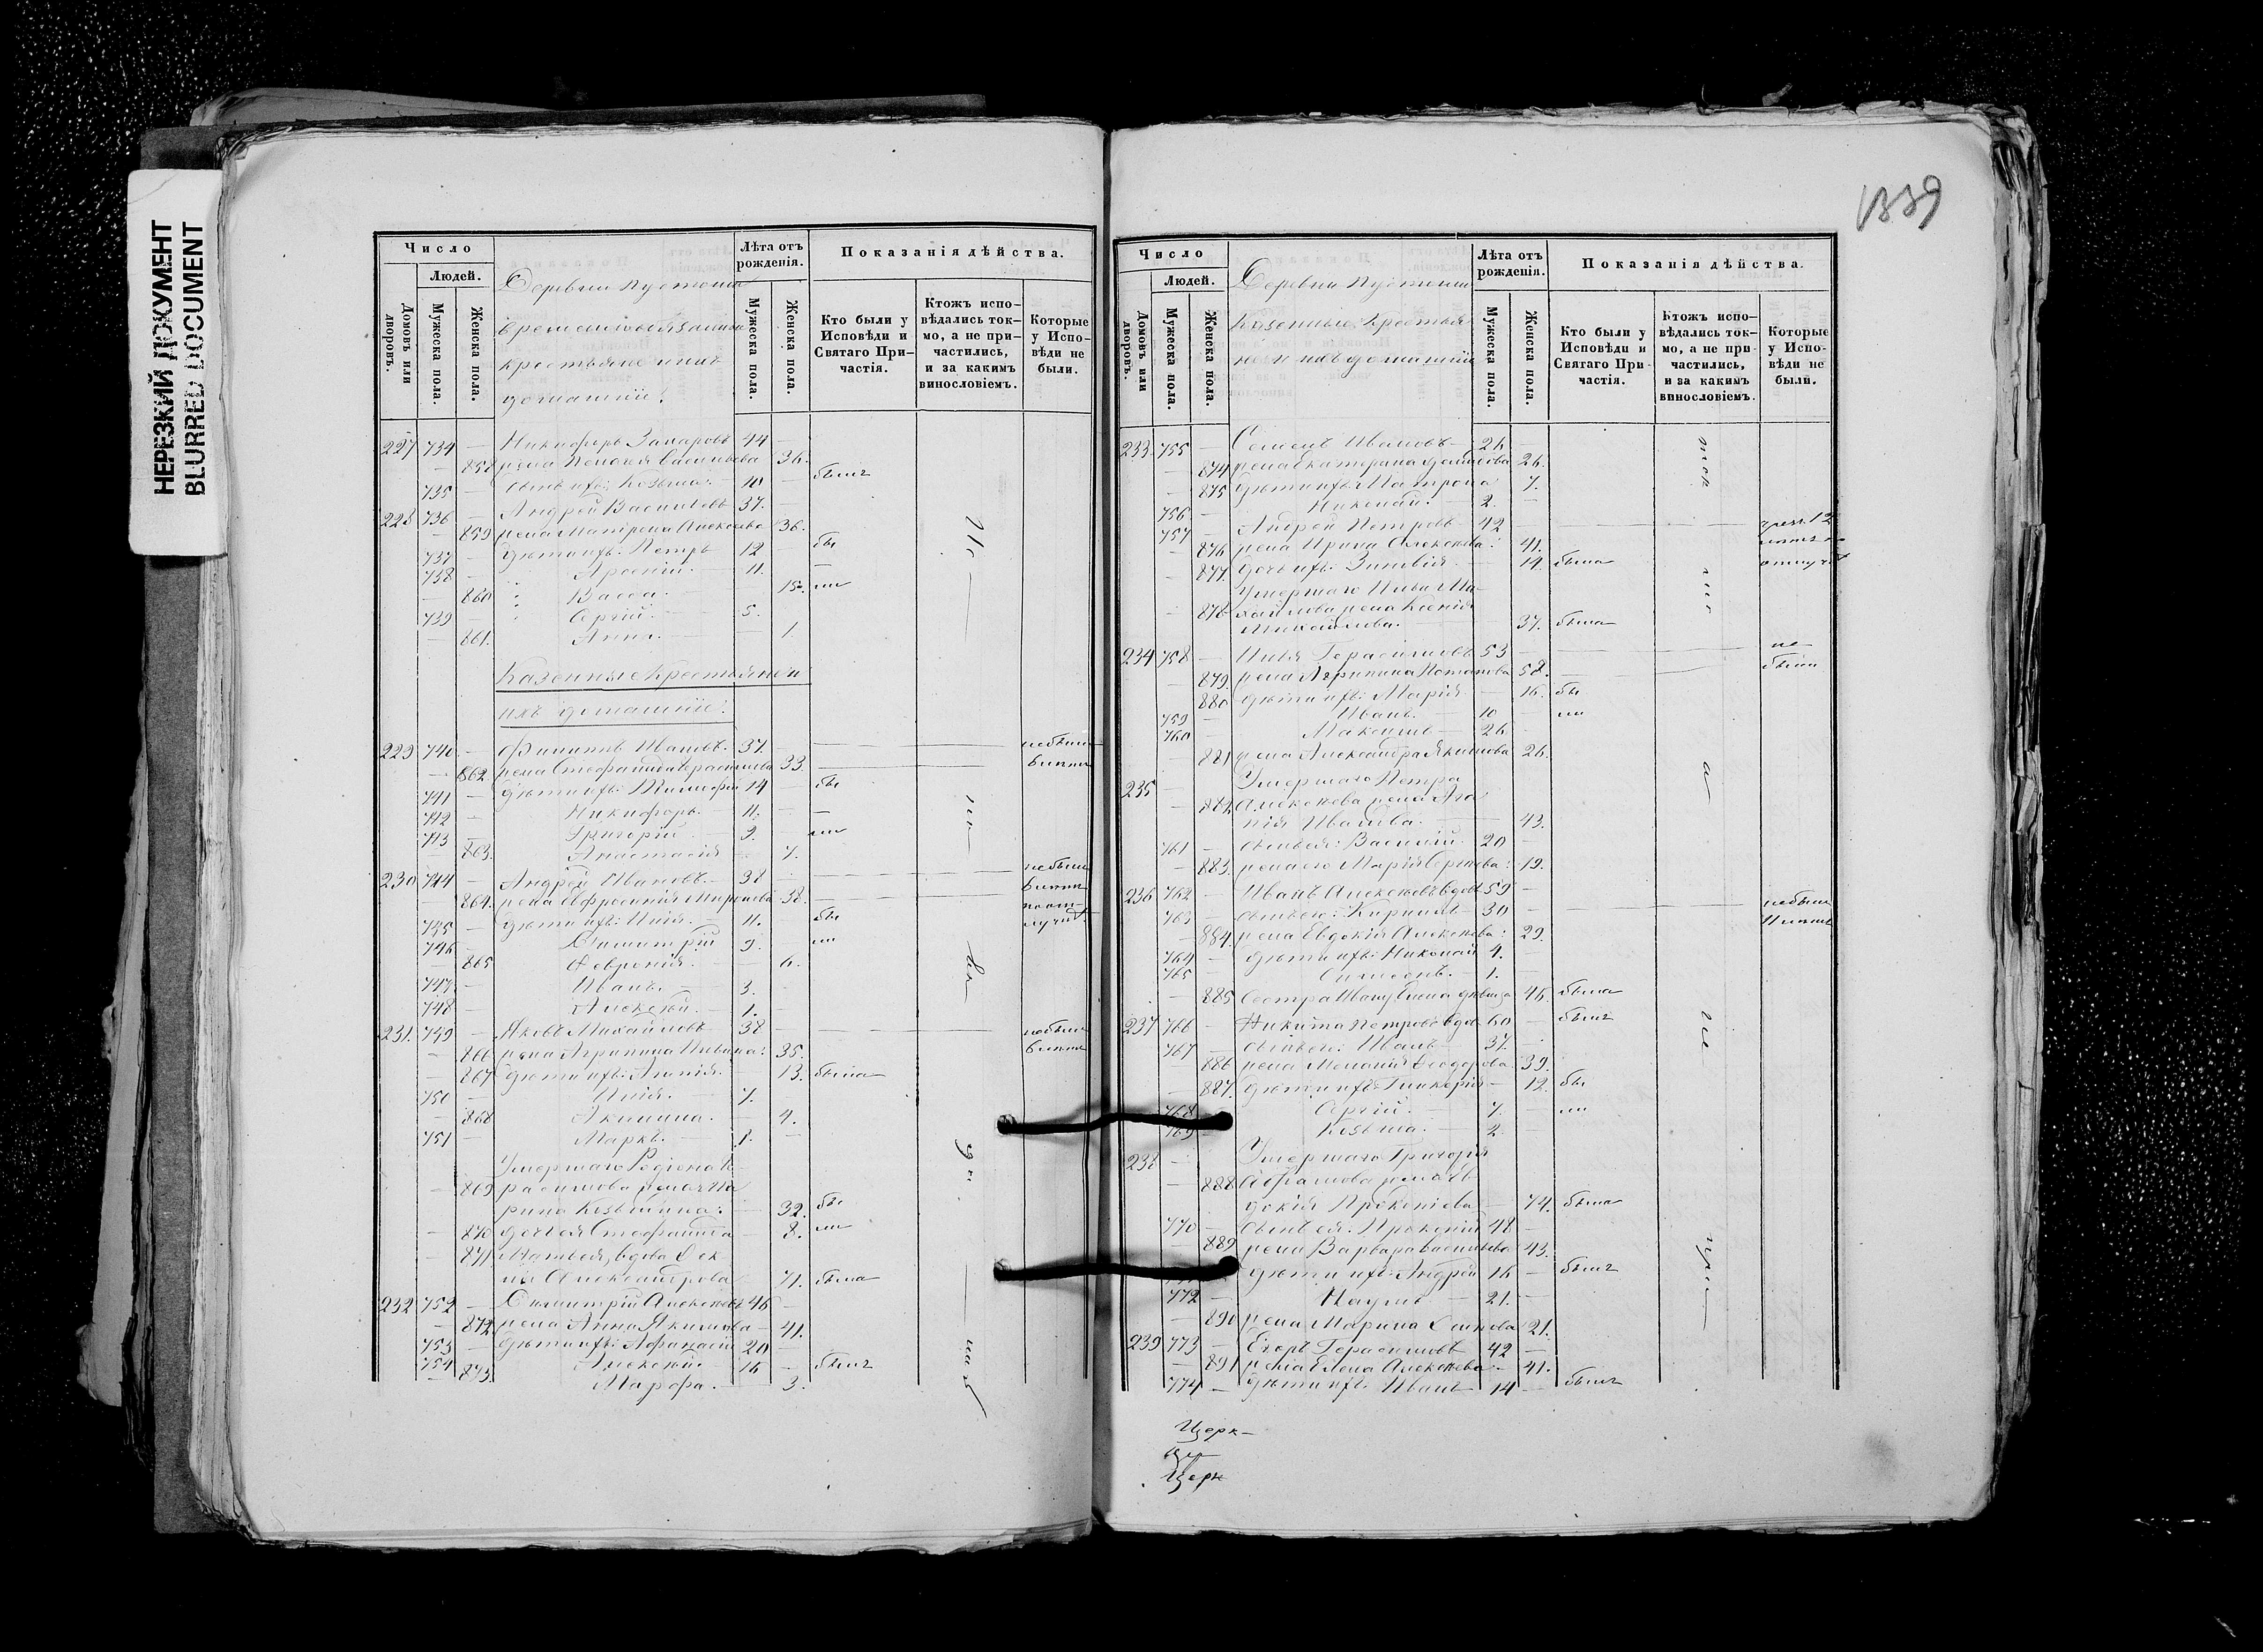 НЕРЕЗКИЙ ДОКУМЕНТ
BLURRED DOCUMENT
Число
Людей.
Домовъ или дворовъ.
Мужеска пола.
Женска пола.
Деревни Пустоши
крестьяне и ихъ
домашніи:
Лѣта отъ рожденія.
Мужеска пола.
Женска пола.
Показанія дѣйства.
Кто были у Исповѣди и Святаго Причастія.
Ктожъ исповѣдались токмо, а не причастились, и за какимъ винословіемъ.
Которые у Исповѣди не были.
227 734 — Никифоръ Захаровъ 44 —
— 858 жена Пелагея Васильева 36.
735 — сынъ ихъ: Козьма: — 10 — были
228 736 — Андрей Васильевъ 37.
— 859 жена Матрона Алексеева 36.
737 — дѣти ихъ: Петръ 12 — бы
738 — Арсеній. — 11. —
— 860 Васса. — 15. ли
739 — Сергій. — 5.
— 861. Анна. — 1.
Казенные Крестьяне и
ихъ домашніе:
229 740 — Филиппъ Ивановъ. 37. — небыли
— 862 жена Стефанида Герасимова 33.
741 — дѣти ихъ: Тимофей 14 — бы
742 — Никифоръ. — 11. —
743 — Григорій — 9. ли
— 863. Анастасія — 7.
230 744 — Андрей Ивановъ. — 38 — небыли
— 864. жена Ефросинія Миронова 38.
745 — дѣти ихъ: Илія. — 11. — бы
746 — Димитрій 9. ли
— 865 Февронія. — 6.
747 — Иванъ. — 3.
748 — Алексѣй. — 1.
231. 749 — Яковъ Михайловъ 38 — небыли
— 866 жена Агрипина Иванова: 35.
— 867 дѣти ихъ: — 13. была
750 — Илія. — 7.
— 868 Акилина. — 4.
751 — Маркъ. — 1. —
Умершаго Родіона Ге-
— 869 расимова жена Ма-
рина Козьмина: — 32. бы
— 870 дочь ея Стефанида — 8. ли
— 871 Мать ея, вдова
Александрова 71. была
232 752 — Димитрій Алексѣевъ 46 —
— 872 жена Анна Якимова — 41.
753 — дѣти ихъ: Афанасій 20 —
754 — Алексѣй. — 16 — были
— 873. Марфа. — 3.
1339
Число
Людей.
Домовъ или дворовъ.
Мужеска пола.
Женска пола.
Деревни Пустоши
Казенные Крестья-
не и ихъ домашніи
Лѣта отъ рожденія.
Мужеска пола.
Женска пола.
Показанія дѣйства.
Кто были у Исповѣди и Святаго Причастія.
Ктожъ исповѣдались токмо, а не причастились, и за какимъ винословіемъ.
Которые у Исповѣди не были.
233. 755 — Семенъ Ивановъ — 26. —
— 874 жена Екатерина 26.
— 875 дѣти ихъ: Матрона 7.
756 — Николай. — 2. —
757 — Андрей Петровъ — 42 —
— 876 жена Ирина Алексѣева: 41.
— 877. дочь ихъ: Зиновія. — 14. была
Умершаго Ильи Ми-
— 878 хайлова жена Ксенія
Михайлова. — 37. была
234 758 — Илья Герасимовъ 53 — не
— 879. жена Агрипина Потапова 52. — были
— 880 дѣти ихъ: Марія — 16. бы
759 — Иванъ. — 10 — ли
760 — Максимъ — 26. —
— 881 жена Александра Якимова 26.
235 — Умершаго Петра
— 882 Алексѣева жена Ага-
пія Иванова. — 43.
761 — сынъ ея: Василій. 20 —
— 883. жена его Марія Сергѣева: 19.
236 762 — Иванъ Алексѣевъ вдовъ 59 —
763 — сынъ его: Кириллъ — 30 — небыли
— 884. жена Евдокія Алексѣева: 29.
764 — дѣти ихъ: Николай 4. —
765 — Симеонъ. — 1. —
— 885 Сестра Ивану Елена дѣвица 46. была
237 766 — Никита Петровъ вдов 60 — были
767 — сынъ его: Иванъ 37. —
— 886 жена Меланія Феодорова: 39.
— 887. дѣти ихъ: Гликерія — 12 бы
768 — Сергій. — 7. — ли
769 — Козьма. — 2
238 — Умершаго Григорія
— 888 жена Ев-
докія Прокопіева — 74. была
770 — сынъ ея: 48 —
— 889 жена Варвара Васильева 43.
дѣти ихъ: Андрей 16 — были
772 — Наумъ — 21. —
— 890 жена Марина 21.
239 773 — Егоръ Герасимовъ 42 —
— 891 жена Елена Алексѣева: — 41.
774 — дѣти ихъ: Иванъ — 14 — были
Церк-
Це
Церк